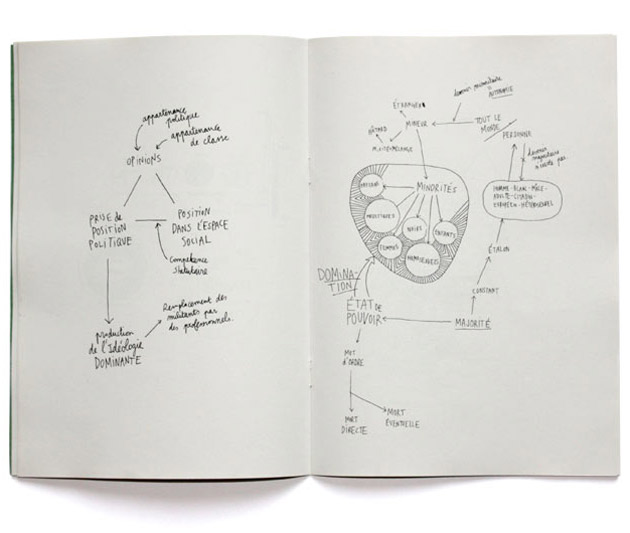 appartenance
politique
appartenance
de classe
OPINIONS
PRISE de
POSITION
POLITIQUE
POSITION
DANS L'ESPACE
SOCIAL
Compétence
statutaire
Remplacement des
militants par
des professionnels.
production
de l'Idéologie
DOMINANTE
devenir minoritaire
=
AUTONOMIE
ÉTRANGER
MINEUR
TOUT LE
MONDE
PERSONNE
BÂTARD
MINORITÉS
devenir
majoritaire
n'existe pas
HOMME-BLANC-MÂLE-
ADULTE-CITADIN-
EUROPÉEN-HÉTÉROSEXUEL
NOIRS
ENFANTS
FEMMES
HOMOSEXUELS
ÉTALON
DOMINA-
TION
CONSTANT
ÉTAT DE
POUVOIR
MAJORITÉ
MOT
D'ORDRE
MORT
DIRECTE
MORT
ÉVENTUELLE